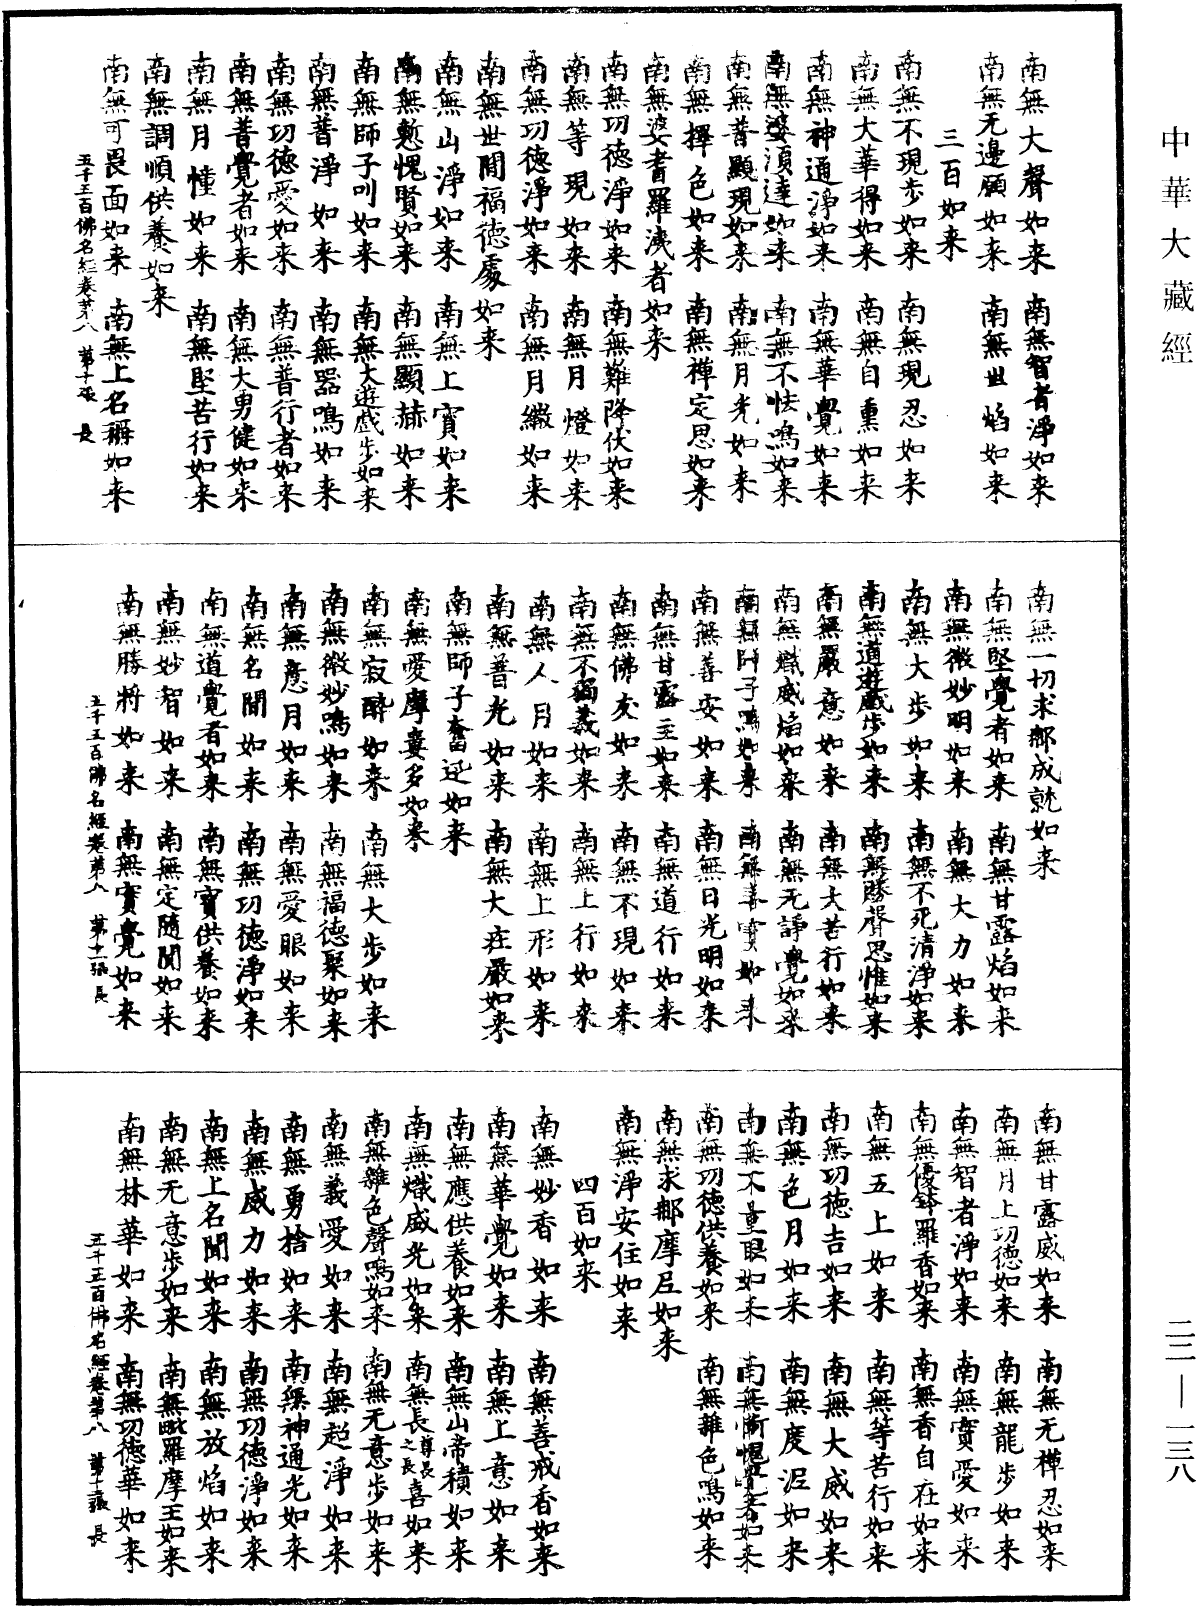 中華大藏經
南無大聲如来　南無智者淨如来
南無无邊願如来　南無世焰如来
三百如来
南無不現步如来　南無現忍如来
南無大華得如来　南無自熏如来
南無神通淨如来　南無華覺如来
南無婆湏達如来　南無不怯鳴如来
南無普顯現如来　南無月光如来
南無擇色如来　南無禪定思如来
南無婆耆羅洟者如来
南無功德淨如来　南無難降伏如来
南無等現如来　南無月燈如来
南無功德淨如来　南無月繖如来
南無世間福德處如来
南無山淨如来　南無上寳如来
南無慙愧賢如来　南無顯赫如来
南無師子吼如来　南無大遊戲步如来
南無普淨如来　南無器鳴如来
南無功德愛如来　南無普行者如来
南無普覺者如来　南無大勇健如来
南無月幢如来　南無堅苦行如来
南無調順供養如来
南無可畏面如来　南無上名稱如来
五千五百佛名經卷第八　第十張　長
南無一切求那成就如来
南無堅覺者如来　南無甘露焰如来
南無微妙明如来　南無大力如来
南無大步如来　南無不死清淨如来
南無道遊戲步如来　南無勝聲思惟如来
南無嚴意如来　南無大苦行如来
南無熾威焰如来　南無无諍覺如来
南無師子鳴如来　南無善寳如来
南無善安如来　南無日光明如来
南無甘露主如来　南無道行如来
南無佛友如来　南無不現如来
南無不獨義如来　南無上行如来
南無人月如来　南無上形如来
南無普光如来　南無大莊嚴如来
南無師子奮迅如来
南無愛摩婁多如来
南無寂酔如来　南無大步如来
南無微妙鳴如来　南無福德聚如来
南無意月如来　南無愛眼如来
南無名聞如来　南無功德淨如来
南無道覺者如来　南無寳供養如来
南無妙智如来　南無定隨聞如来
南無勝將如来　南無寳覺如来
五千五百佛名經卷第八　第十一張　長
南無甘露威如来　南無无禪忍如来
南無月上功德如来　南無龍步如来
南無智者淨如来　南無寳愛如来
南無優鉢羅香如来　南無香自在如来
南無五上如来　南無等苦行如来
南無功德吉如来　南無大威如来
南無色月如来　南無度泥如来
南無不量眼如来　南無慚愧覺者如来
南無功德供養如来　南無雜色鳴如来
南無求那摩尼如来
南無淨安住如来
四百如来
南無妙香如来　南無善戒香如来
南無華覺如来　南無上意如来
南無應供養如来　南無山帝積如来
南無熾盛光如来　南無長尊長之長喜如来
南無雜色聲鳴如来　南無无意步如来
南無義愛如来　南無超淨如来
南無勇捨如来　南無神通光如来
南無威力如来　南無功德淨如来
南無上名聞如来　南無放焰如来
南無无意步如来　南無毗羅摩王如来
南無林華如来　南無功德華如来
五千五百佛名經卷第八　第十二張　長
二二—一三八